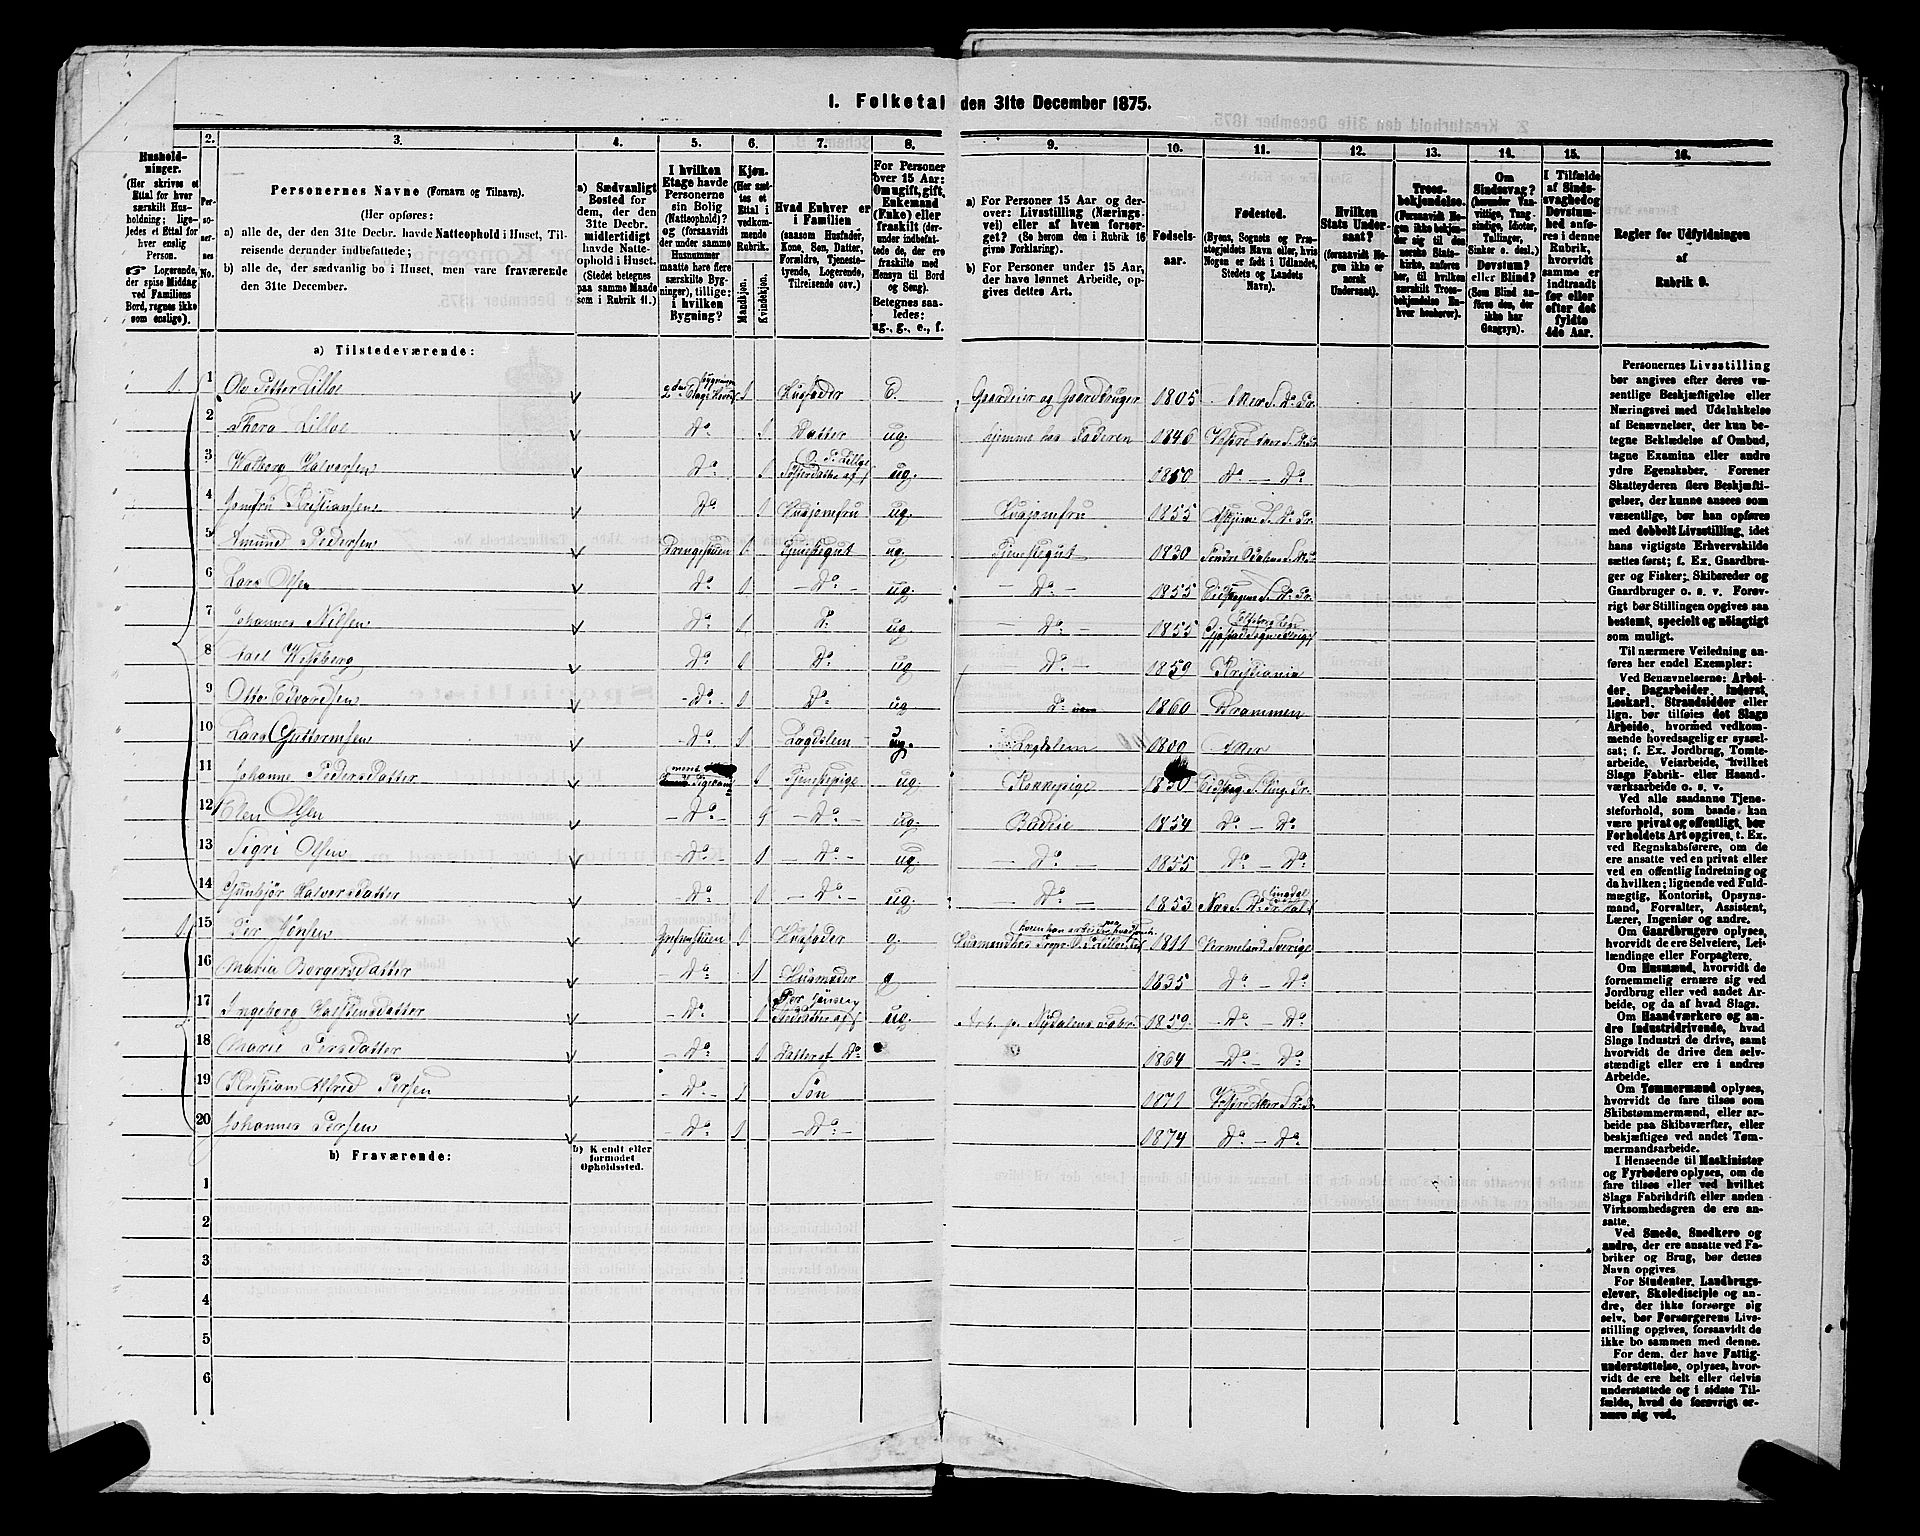 I. Folketal den 31te December 1875.
1. 2. 3. 4. 5. 6. 7. 8. 9. 10. 11. 12. 13. 14. 15. 16.
Hushold-
ninger.
(Her skrives et
Ettal for hver
særskilt Hus-
holdning; lige-
ledes et Ettal
for hver
enslig
Person.
☞ Logerende,
der spise Middag
ved Familiens
Bord, regnes ikke
som enslige).
Per-
so-
ner-
nes
No.
Personernes Navne (Fornavn og Tilnavn).
(Her opføres:
a) alle de, der den 31te Decbr. havde Natteophold i Huset, Til-
reisende derunder indbefattede;
b) alle de, der sædvanlig bo i Huset, men vare fraværende
den 31te December.
a) Sædvanligt
Bosted for
dem, der den
31te Decbr.
midlertidigt
havde Natte-
ophold i Huset.
(Stedet betegnes
paa samme Maade
som i Rubrik 11.)
I hvilken
Etage havde
Personerne
sin Bolig
(Natteophold)?
og (forsaavidt
der under samme
Husnummer
maatte høre flere
særskilte Byg-
ninger), tillige:
i hvilken
Bygning?
Kjøn.
(Her sæt-
tes et
Ettal i
vedkom-
mende
Rubrik.
Mandkjøn.
Kvindekjøn.
Hvad Enhver er
i Familien
(saasom Husfader,
Kone, Søn, Datter,
Forældre, Tjeneste-
tyende, Logerende,
Tilreisende osv.)
For Personer
over 15 Aar:
Om ugift, gift,
Enkemand
(Enke) eller
fraskilt (der-
under indbefat-
tede de, der ere
fraskilte med
Hensyn til Bord
og Seng).
Betegnes saa-
ledes:
ug., g., e., f.
a) For Personer 15 Aar og der-
over: Livsstilling (Nærings-
vei) eller af hvem forsør-
get? (Se herom den i Rubrik 16
givne Forklaring).
b) For Personer under 15 Aar,
der have lønnet Arbeide, op-
gives dettes Art.
Fødsels-
aar.
Fødested.
(Byens, Sognets og Præ-
stegjeldets Navn eller, hvis
Nogen er født i Udlandet,
Stedets og Landets
Navn).
Hvilken
Stats Under-
saat?
(forsaavidt No-
gen ikke er
norsk
Undersaat).
Troes-
bekjendelse.
(Forsaavidt No-
gen ikke bekjen-
der sig til den
norske Stats-
kirke, anføres
her, til hvilken
særskilt Troes-
bekjendelse En-
hver henhører).
Om
Sindssvag?
(herunder Van-
vittige, Tung-
sindige, Idioter,
Tullinger,
Sinker o. desl.)
Døvstum?
eller Blind?
(Som Blind an-
føres den, der
ikke har
Gangsyn).
I Tilfælde
af Sinds-
svaghed og
Døvstum-
hed anføs-
res i denne
Rubrik,
hvorvidt
samme er
indtraadt
før eller
efter det
fyldte
4de Aar.
Regler for Udfyldningen
af
Rubrik 9.
a) Tilstedeværende:
1 1 Ol. Petter Lilloe 1 Husfader E. Gaardeier og Gaardbruger 1805
2 Thora Lilloe Do 1 Datter ug. hjemme hos Faderen 1846
3 Walborg Halvorsen Do 1 ug. 1850 Do — Do
4 Jomfru Kristiansen Do 1 Husjomfru ug. Husjomfru 1855
5 Amund Pedersen Drengestuen 1 Tjenestegut ug. Tjenestegut 1830
6 Lars Olsen Do 1 — Do — ug. — Do — 1855
7 Johannes Nilsen Do 1 Do ug. — Do — 1855
8 Axel Do 1 Do ug Do 1859 Kristiania
9 Otto Edvardsen Do 1 Do ug Do 1860 Drammen
10 Lars Guttormsen Do 1 Lægdslem Lægdslem 1800 Aker
11 Johanne Pedersdatter 1 Tjenestepige ug. Kokkepige 1850
12 Elen Olsen Do 1 — Do — ug. Budeie 1854 Do — Do
13 Sigri Olsen Do 1 — Do — ug. — Do — 1855 Do — Do
14 Gunbjør Halvorsdatter Do 1 — Do — ug. — Do — 1853
1 15 Per Jensen 1 Husfader g. 1841 Vermeland Sverige
16 Maria Borgersdatter Do 1 Husmoder g 1835 Do — Do
17 Ingeborg Halstensdatter Do 1 ug. 1859 — Do — Do
18 Marie Persdatter Do 1 Datter af Do 1864 — Do — Do
19 Kristian Alfred Persen Do 1 Søn 1871
20 Johannes Persen Do 1 — Do — 1874 Do — Do
b) Fraværende:
b) Kjendt eller
formodet
Opholdssted.
1
2
3
4
5
6
Personernes Livsstilling
bør angives efter deres væ-
sentlige Beskjæftigelse eller
Næringsvei med Udelukkelse
af Benævnelser, der kun be-
tegne Beklædelse af Ombud,
tagne Examina eller andre
ydre Egenskaber. Forener
Skatteyderen flere Beskjæfti-
gelser, der kunne ansees som
væsentlige, bør han opføres
med dobbelt Livsstilling, idet
hans vigtigste Erhvervskilde
sættes først; f. Ex. Gaardbru-
ger og Fisker; Skibsreder og
Gaardbruger o. s. v. Forøv-
rigt bør Stillingen opgives saa
bestemt, specielt og nøiagtigt
som muligt.
Til nærmere Veiledning an-
føres her endel Exempler:
Ved Benævnelserne: Arbei-
der, Dagarbeider, Inderst,
Løskarl, Strandsidder eller
lign. bør tilføies det Slags
Arbeide, hvormed vedkom-
mende hovedsagelig er syssel-
sat; f. Ex. Jordbrug, Tomte-
arbeide, Veiarbeide, hvilket
Slags Fabrik- eller Haand-
værksarbeide o. s. v.
Ved alle saadanne Tjene-
steforhold, som baade kan
være privat og offentligt, bør
Forholdets Art opgives, t. Ex.
ved Regnskabsførere, om de
ere ansatte ved en privat eller
ved en offentlig Indretning og
da hvilken; lignende ved Fuld-
mægtig, Kontorist, Opsyns-
mand, Forvalter, Assistent,
Lærer, Ingeniør og andre.
Om Gaardbrugere oplyses,
hvorvidt de ere Selveiere, Lei-
lændinge eller Forpagtere.
Om Husmænd, hvorvidt de
fornemmelig ernære sig ved
Jordbrug eller ved andet Ar-
beide, og da af hvad Slags.
Om Haandværkere og an-
dre Industridrivende, hvad
Slags Industri de drive, samt
hvorvidt de drive den selv-
stændigt eller ere i andres
Arbeide.
Om Tømmermænd oplyses,
hvorvidt de fare tilsøs som
Skibstømmermænd, eller ar-
beide paa Skibsværfter, eller
beskjæftiges ved andet Tøm-
mermandsarbeide.
I Henseende til Maskinister
og Fyrbødere oplyses, om de
fare tilsøs eller ved hvilket
Slags Fabrikdrift eller anden
Virksomhedsgren de ere an-
satte.
Ved Smede, Snedkere og
andre, der ere ansatte ved Fa-
briker og Brug, bør dettes
Navn opgives.
For Studenter, Landbrugs-
elever, Skoledisciple og an-
dre, der ikke forsørge sig
selv, bør Forsørgerens Livs-
stilling opgives, forsaavidt de
ikke bo sammen med denne.
For dem, der have Fattig-
understøttelse, oplyses, hvor-
vidt de ere helt eller delvis
understøttede og i sidste Til-
fælde, hvad de forøvrigt er-
nære sig ved.